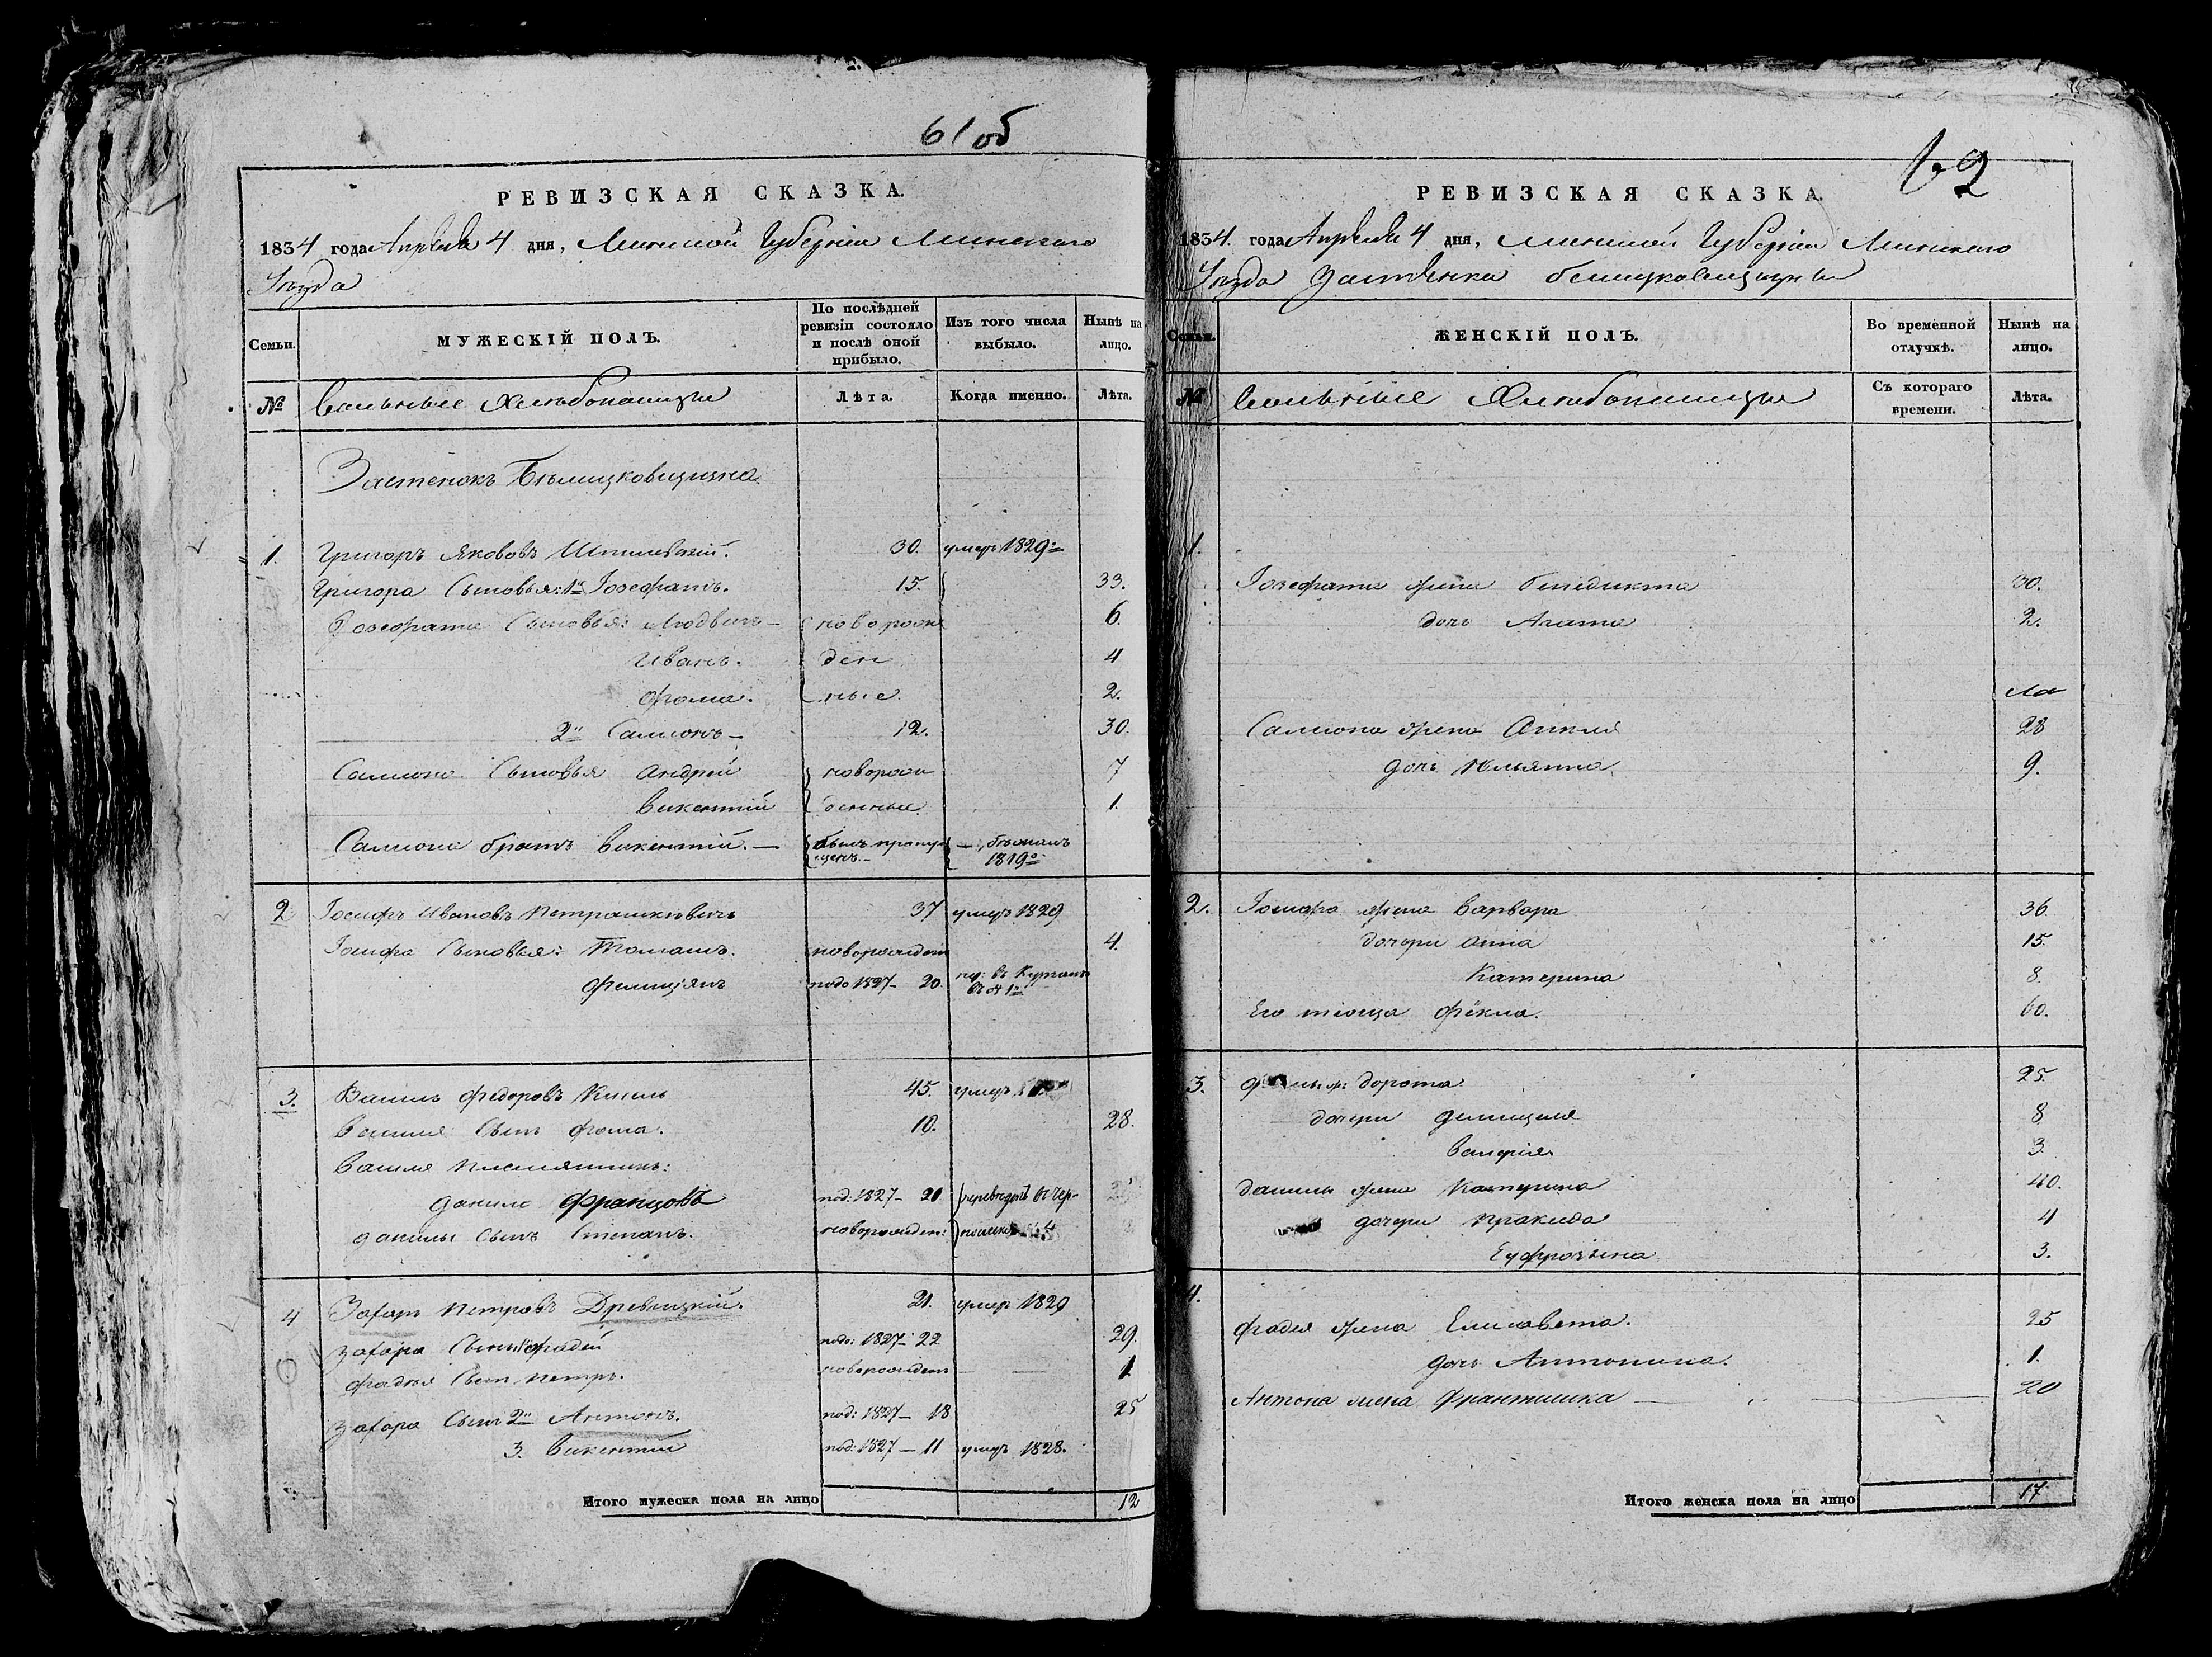 61 об
РЕВИЗСКАЯ СКАЗКА.
1834 года Апрѣля 4 дня, Минской Губерніи Минскаго
Уѣзда
Семьи.
МУЖЕСКІЙ ПОЛЪ.
По послѣдней ревизіи состояло и послѣ оной прибыло.
Изъ того числа выбыло.
Нынѣ на лицо.
№
Вольные Хлѣбопашцы
Лѣта.
Когда именно.
Лѣта.
Застенокъ Бѣлицковщизна.
1. Григоръ Яковъ 30. умеръ 1829го
Григора Сыновья: 1й Іозефатъ. 15. 33.
Іозефата Сыновья: Людвигъ – новорож 6.
Иванъ. ден 4
Фома. ные. 2.
2й Самсонъ – 12. 30.
Самсона Сыновья Андрей новорож 7
Викентій денные 1.
Самсона братъ Викентій. – былъ пропу щенъ. – бѣжалъ 1819го
2 Іосифъ Ивановъ Петрашкевичъ 37 умеръ 1829
Іосифа Сыновья: Томашъ. новорожден 4.
Фелиціянъ подо 1827 – 20.
3. Василь Федоровъ Кисель 45. умеръ
Василя Сынъ Фома. 10. 28.
Василя Племянникъ:
Данило Францовъ под: 1827 – 20
Данилы Сынъ Степанъ. новорожден:
4 Захаръ Петровъ Древницкій. 21. умеръ 1829
Захара Сынъ 1й Фадей подо: 1827 – 22 29.
Фадея Сынъ Петръ. новорожден 1
Захара Сынъ 2й Антонъ. под: 1827 – 18 25
3. Викентій под: 1827 – 11 умеръ 1828.
Итого мужеска пола на лицо 12
62
РЕВИЗСКАЯ СКАЗКА.
1834. года Апрѣля 4 дня, Минской Губерніи Минскаго
Уѣзда Застѣнка
Семьи.
ЖЕНСКІЙ ПОЛЪ.
Во временной отлучкѣ.
Нынѣ на лицо.
№
Вольные Хлѣбопашцы
Съ котораго времени.
Лѣта.
1.
Іозефата жена Бенедикта 30.
дочь Агата 2.
Самсона жена 28
дочь Ульянна 9.
2. Іосифа жена Варвара 36.
дочери Анна 15.
Катерина 8.
Его тіоща Фёкла. 60.
3. Дорота 25.
дочери 8
Валерія 3.
Данилы жена Катерина 40.
дочери Пракседа 4
Еуфрозына 3.
4.
Фадея жена Елисавета. 25
дочь Антонина. 1.
Антона жена Франтишка 20
Итого женска пола на лицо 17